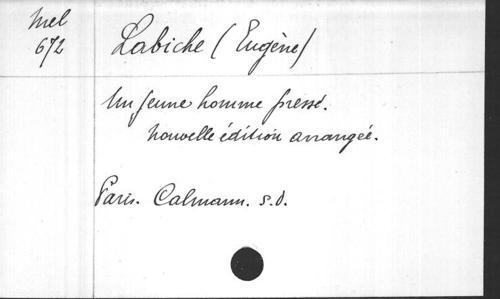 Mel
672
Labiche (Eugène)
Un jeune homme pressé.
nouvelle édition arrangée.
Paris. Calmann. s.d.